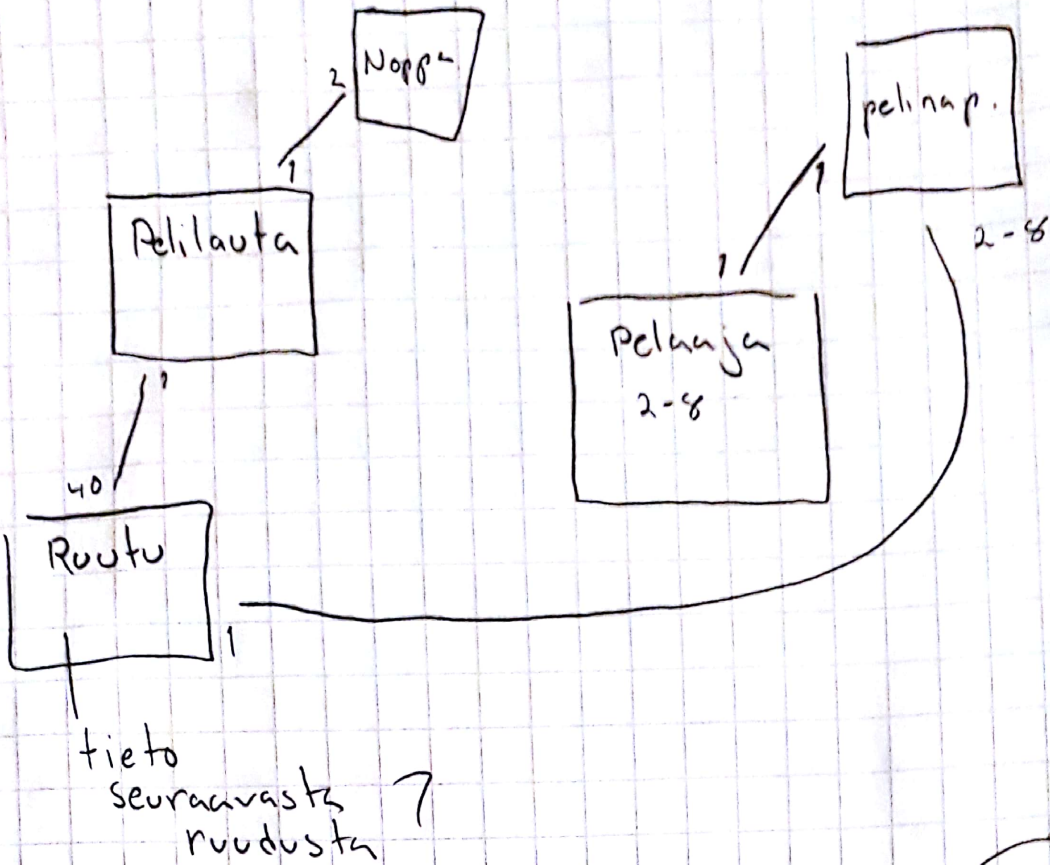 Noppa
2
1
Pelilauta
1
40
Ruutu
1
tieto
seuraavasta ?
ruudusta
pelinap.
1
2-8
1
Pelaaja
2-8